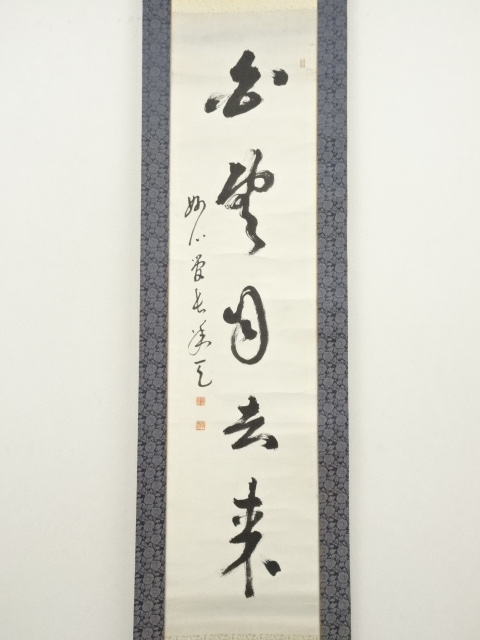 白雲自去来
妙心管長